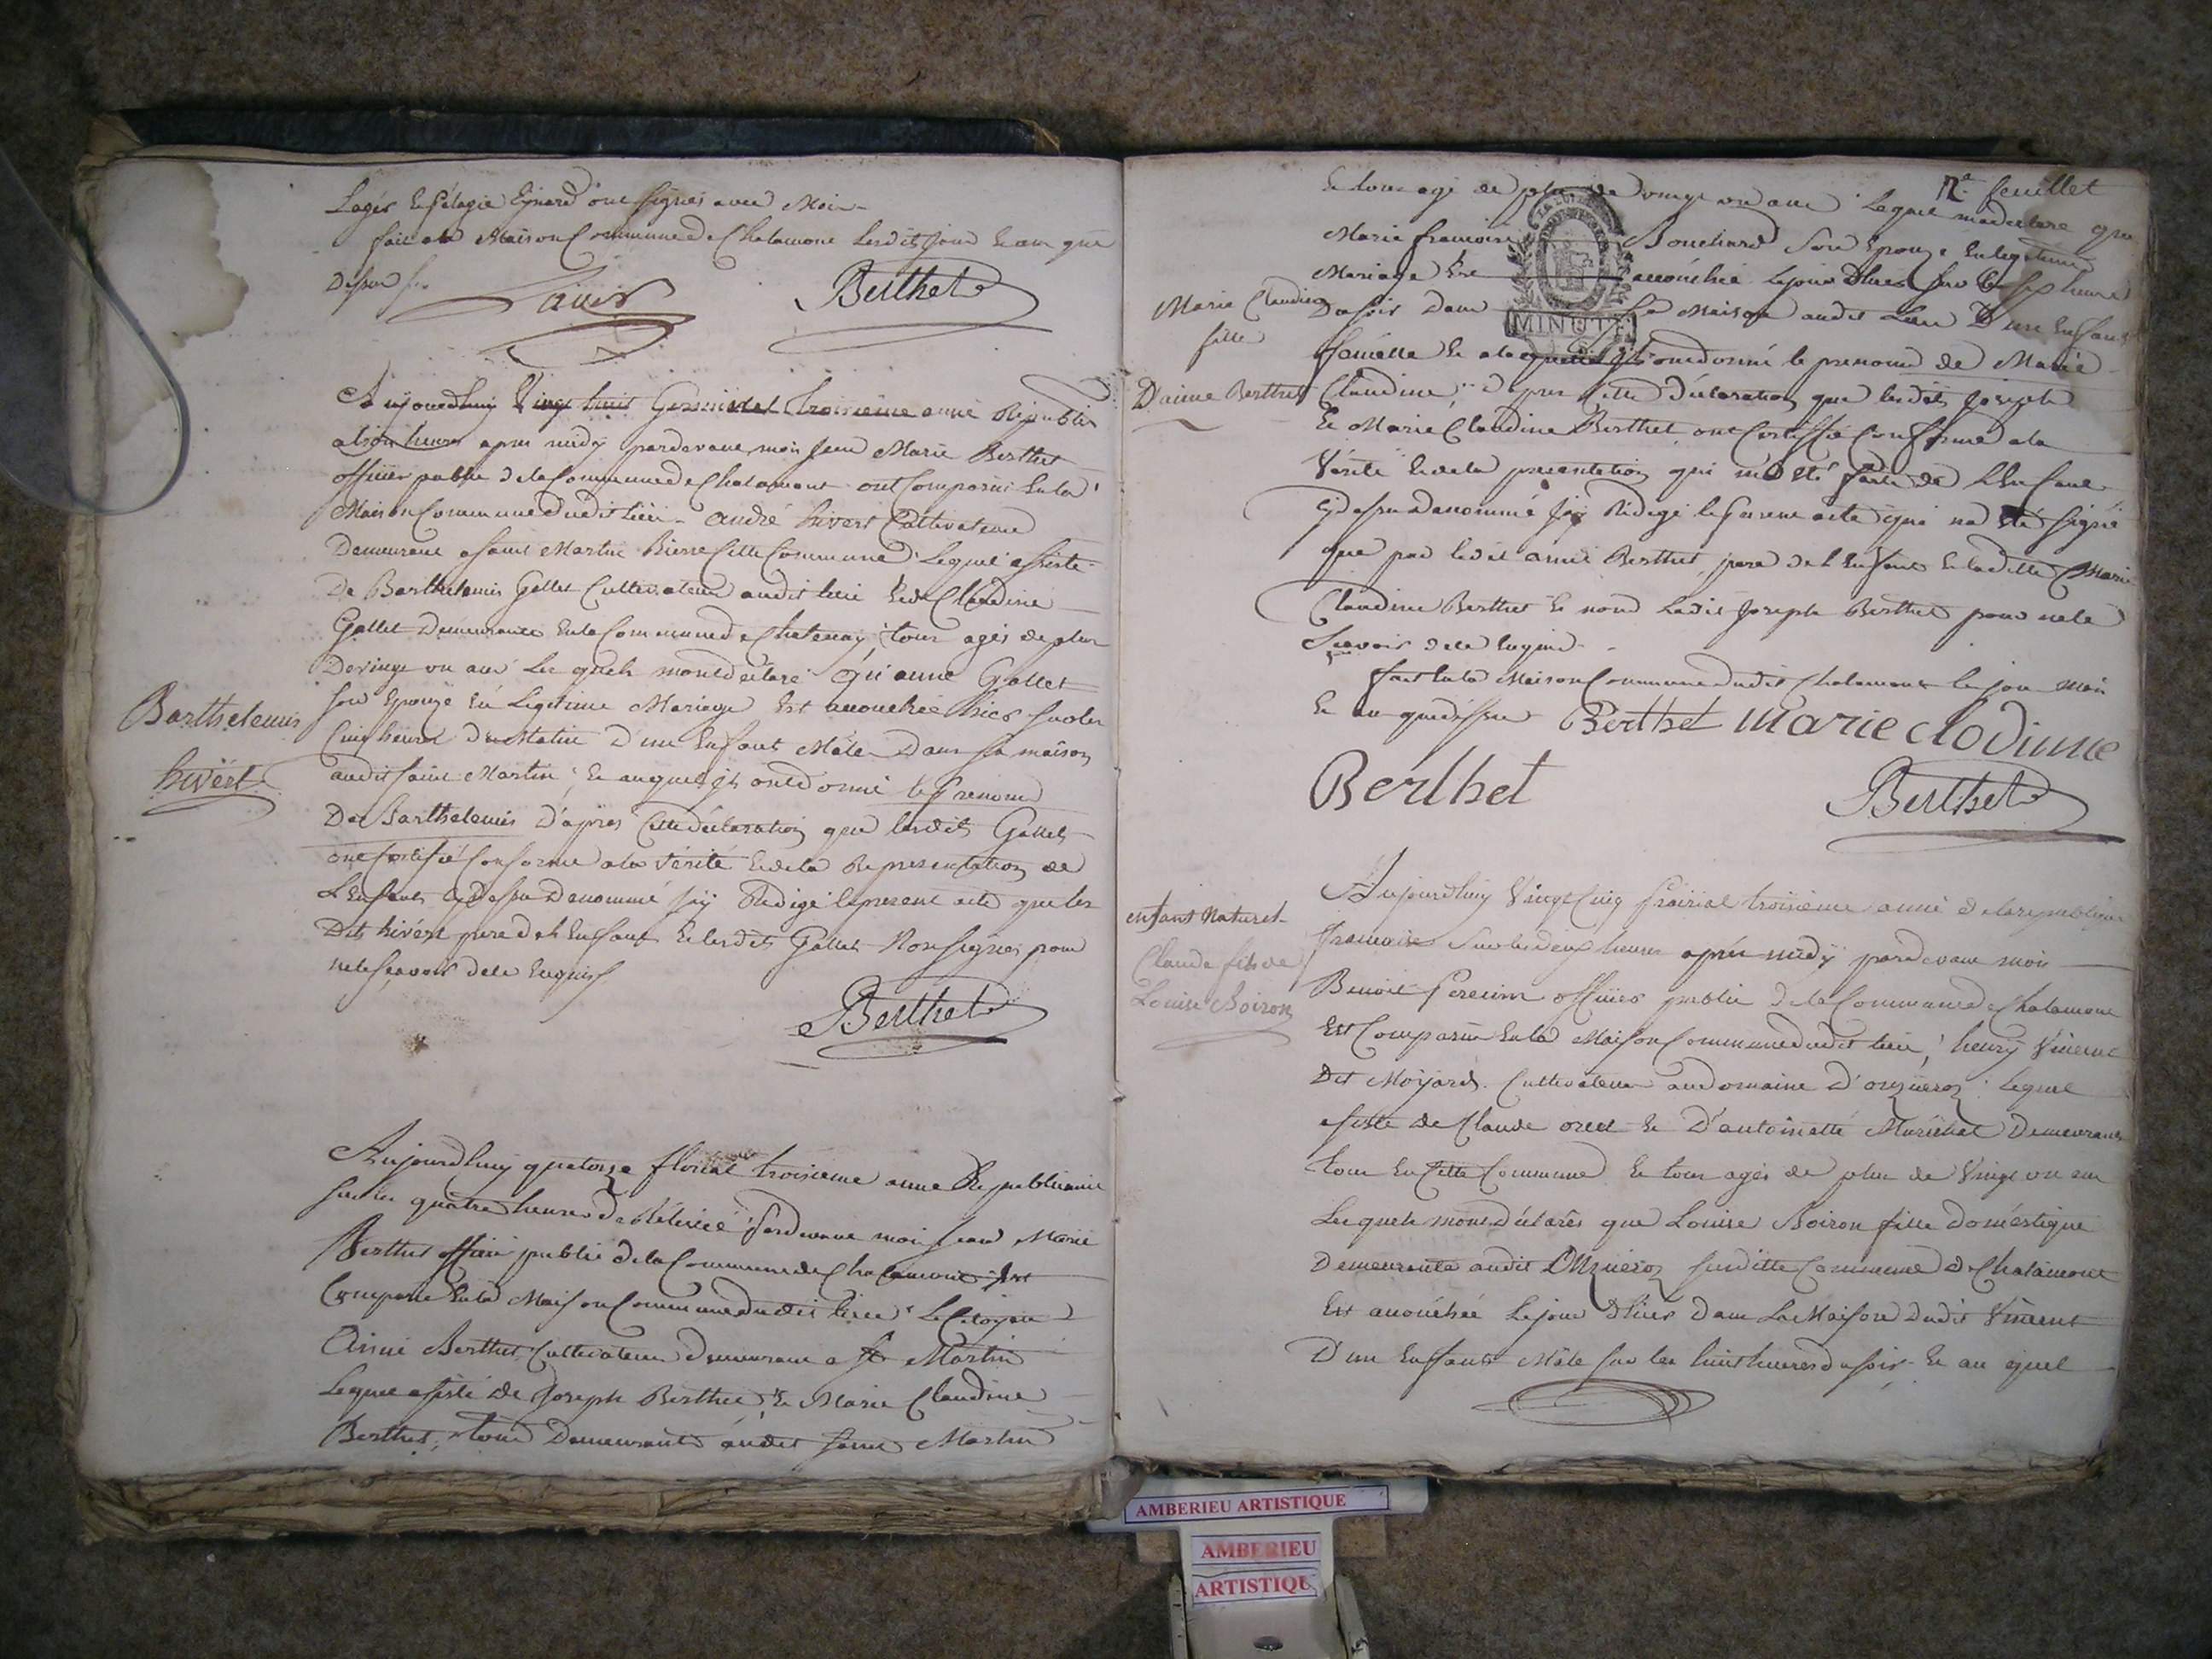 Lagés & pélagie Eynard ont signés avec Moi
fait ala Maison Commune de Chalamont lesdits jour & an que
Dessus
Berthet
Aujourdhuy Vingt huit Germinal troisième anné Républic
atrois heures apres midÿ pardevant moi Jean Marie Berthet
officier public de la Commune de Chalamont ont Comparu En la
Maison Commune dudit lieu André hivert Cultivateur
Demeurant a saint Martin Cette Commune Lequel assisté
De Barthelemis Gallet Cultivateur audit lieu & de Claudine
Gallet Demeurante En la Commune de Chatenay, tous agés de plus
De vingt un ans Les quels mont déclaré qu'anne Gallet
son Epouze En Legitime Mariage Est accouchée hier sur les
Cinq heures du Matin D'un Enfant Mâle Dans sa maison
audit saint Martin, & auquel ils ont donné le prenom
De Barthelemis D'apres Cette déclaration que lesdits Gallet
ont Certifié Conforme a la Vérité & de la Representation de
L'Enfant cy Dessus Denommé jay Redigé le present acte que les
Dits hivert pere de l'Enfant & lesdits Gallet Non signes pour
ne le sçavoir de ce Enquis
Barthelemis
hivert
Berthet
Aujourdhuy quatorze floreal troisieme anné Republicaine
sur les quatre heures de Relevée pardevant moi Jean Marie
Berthet officié public de la Commune de Chalamont Est
Comparu En la Maison Commune dudit lieu Le Citoyen
Aimé Berthet Cultivateur demeurant a St Martin
Lequel assisté de Joseph Berthet & Marie Claudine
Berthet, tous Demeurants audit saint Martin
12e feuillet
& tous agé de plus de vingt un ans Lequel ma declaré que
Marie francoise Bouchard son Epouze En legitime
Mariage Est accouchée le jour D'hier sur les sept heures
Du soir Dans sa Maison audit Lieu D'un Enfant
fémelle & a laquelle ils ont donné le prenom de Marie
Claudine, D'apres Cette Déclaration que lesdits Joseph
& Marie Claudine Berthet ont Certiffié Conforme a la
Vérité & de la presentation qui ma été faite de L'Enfant
cy dessus Denommé jay Redigé le present acte qui na été signé
que par ledit aimé Berthet, pere de l'Enfant & ladite Marie
Claudine Berthet & nond Ledit Joseph Berthet pour ne le
Scavoir de ce Enquis
fait En la Maison Commune dudit Chalamont le jour mois
& an que dessus Berthet marie clodinne
Berthet
Berthet
Marie Claudine
fille
D'aimé Berthet
MINUTE
Aujourdhuy Vingt Cinq prairial troisieme anné de la republique
francoise sur les deux heures aprés midÿ pardevant moi
Benoit officier public de la Commune de Chalamont
Est Comparu En la Maison Commune dudit lieu, henrÿ Vincent
Dit Moÿard Cultivateur au domaine D'onzieron Lequel
assisté de Claude & D'antoinette Demeurants
tous En Cette Commune & tous agés de plus de Vingt un an
Lesquels mont déclarés que Louise Boiron fille doméstique
Demeurante audit Onzieron susditte Commune de Chalamont
Est accouchée le jour D'hier dans La Maison dudit Vincent
D'un Enfant Mâle sur les huit heures du soir & au quel
enfant Naturel
Claude fils de
Louise Boiron
AMBERIEU ARTISTIQUE
AMBERIEU
ARTISTIQUE